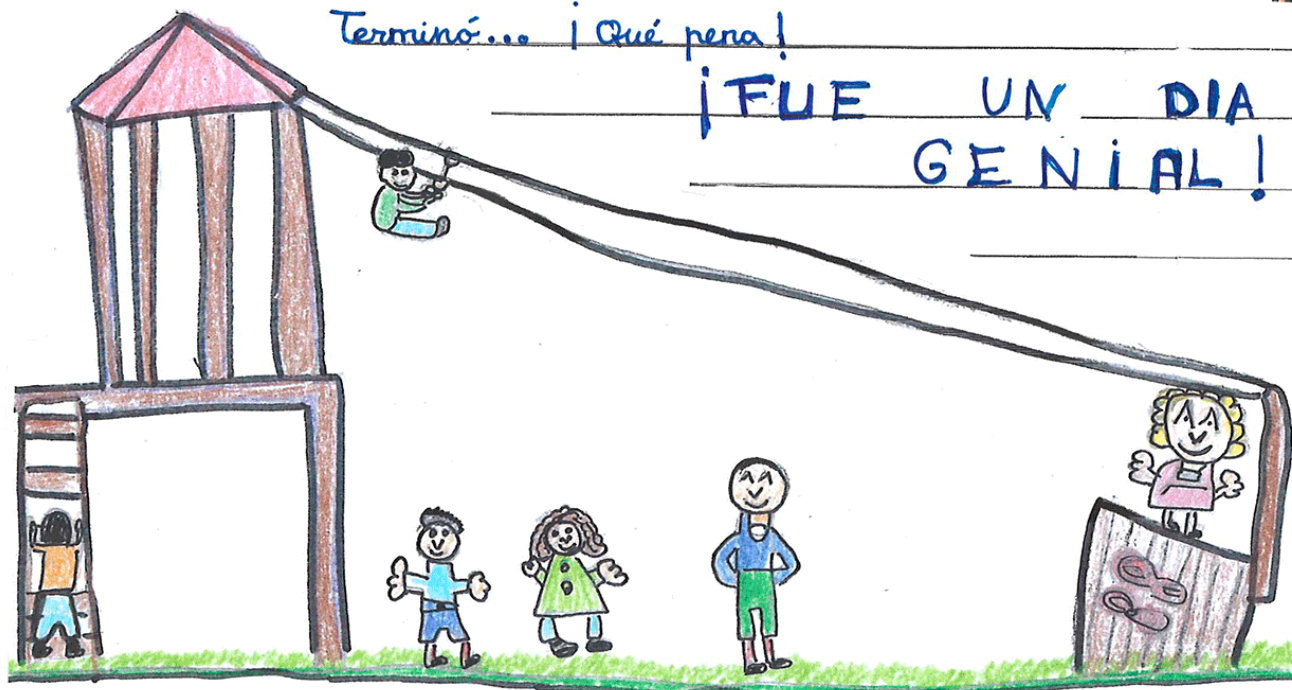 Terminó... ¡Qué pena!
¡FUE UN DIA
GENiAL!